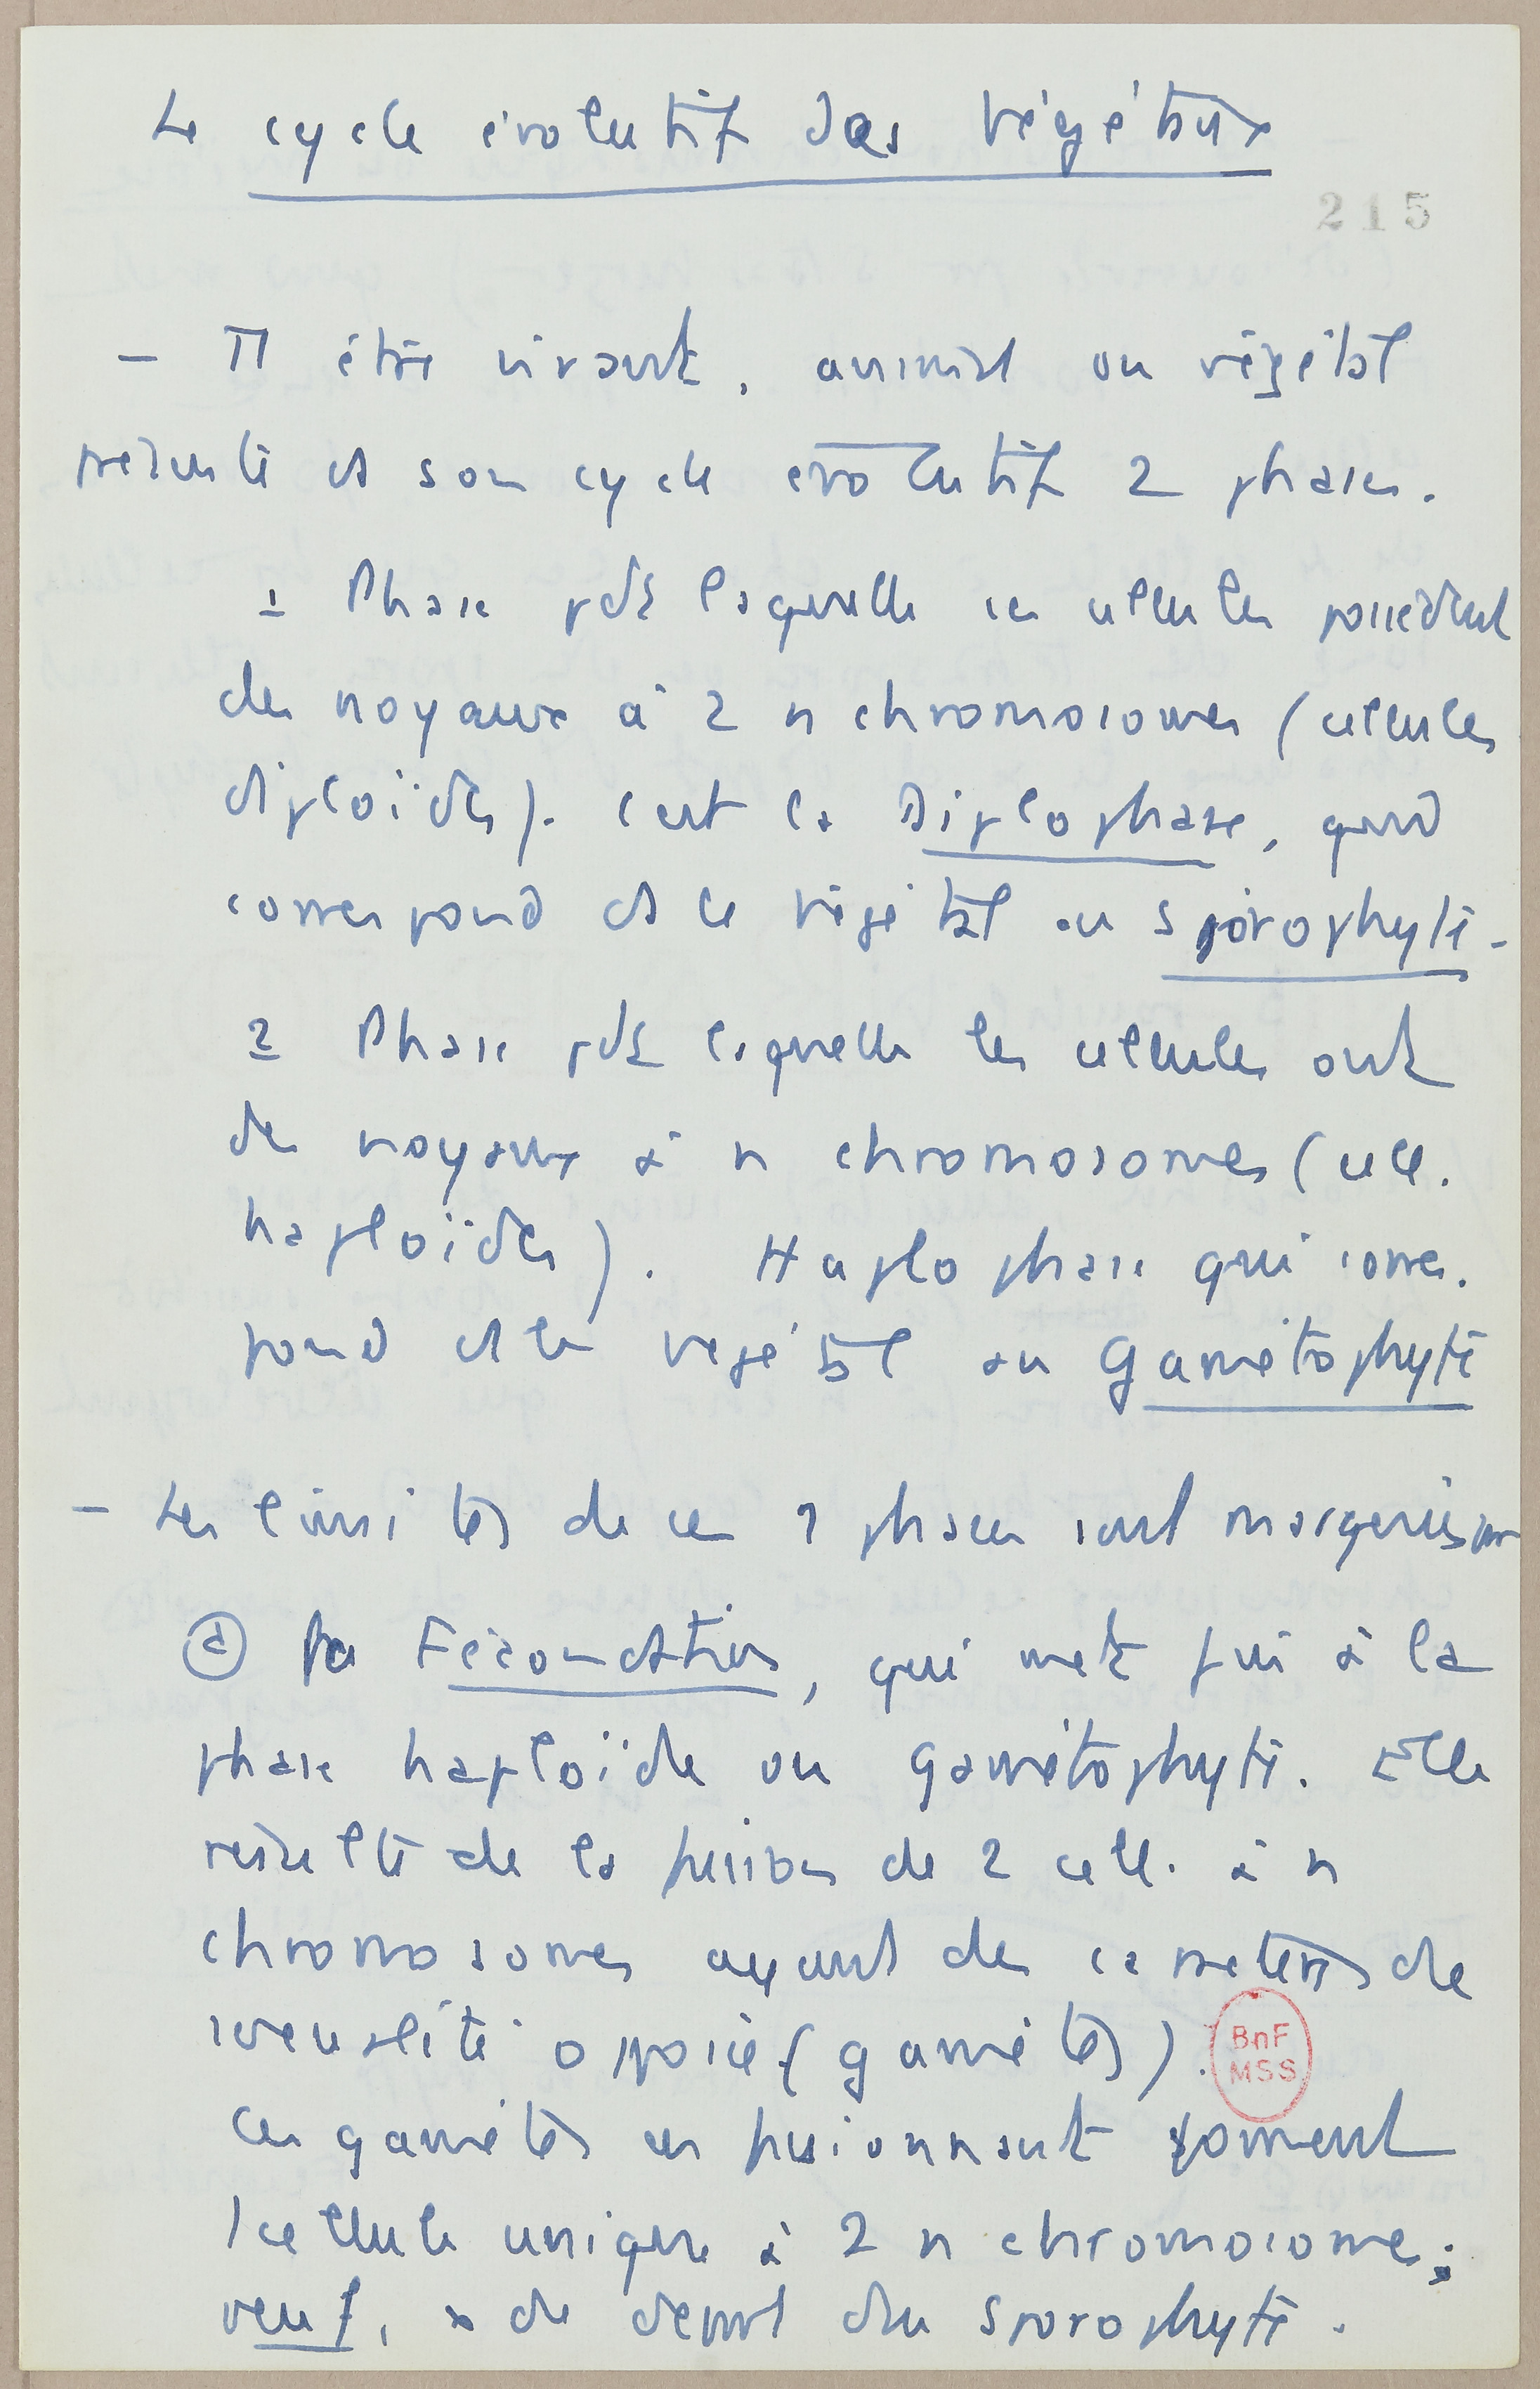 Le cycle évolutif des végétaux
215
– Tt être vivant, animal ou végétal
présente ds son cycle évolutif 2 phases.
1 Phase pdt laquelle ses cellules possèdent
des noyaux à 2 n chromosomes (cellules
diploïdes). C'est la Diplophase, qui
correspond ds le végétal au sporophyte.
2 Phase pdt laquelle les cellules ont
des noyaux à n chromosomes (cell.
haploïdes). Haplophase qui corres.
pond ds le végétal au Gamétophyte
– Les limites de ces 2 phases sont marquées par
a la Fécondation, qui met fin à la
phase haploïde ou gamétophyte. Elle
résulte de la fusion de 2 cell. à n
chromosomes ayant des caractères de
sexualité opposée (gamètes).
BnF
MSS
Ces gamètes en fusionnant forment
1 cellule unique à 2 n chromosomes :
œuf, de départ du sporophyte.